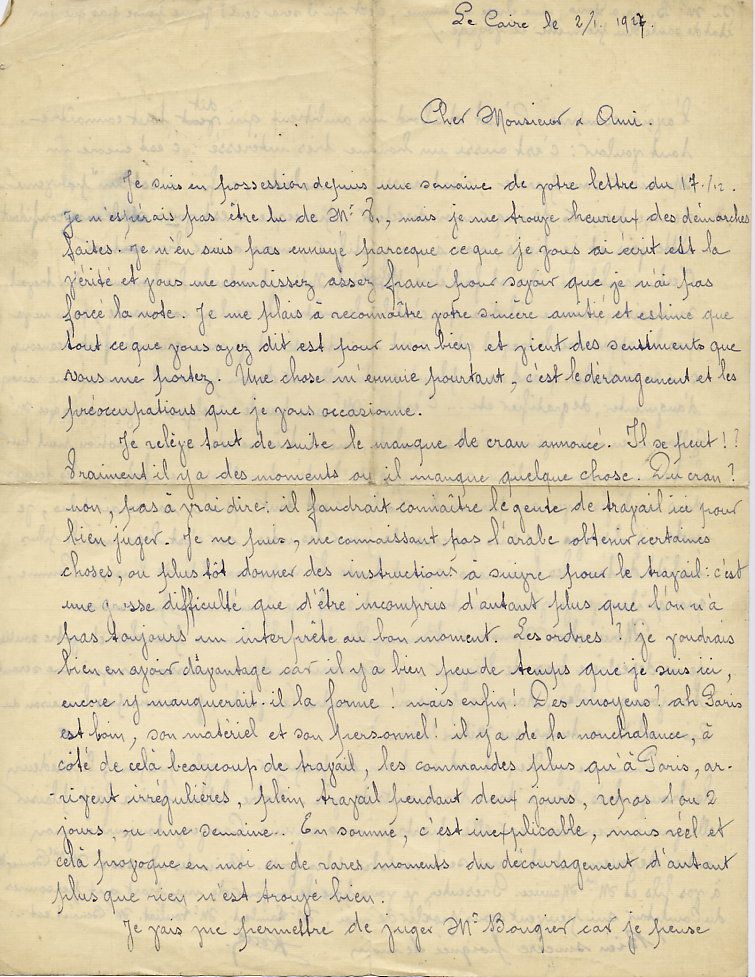 Le Caire le 2/1. 1927.
Cher Monsieur & Ami.
Je suis en possession depuis une semaine de votre lettre du 17./12.
Je n'espérais pas être lu de Mr. , mais je me trouve heureux des démarches
faites. Je n'en suis pas ennuyé parceque ce que je vous ai écrit est la
vérité et vous me connaissez assez franc pour savoir que je n'ai pas
forcé la note. Je me plais à reconnaître votre sincère amitié et estime que
tout ce que vous avez dit est pour mon bien et vient des sentiments que
vous me portez. Une chose m'ennuie pourtant, c'est le dérangement et les
préoccupations que je vous occasionne.
Je relève tout de suite le manque de cran annoncé. Il se peut!?
Vraiment il y a des moments ou il manque quelque chose. Du cran?
non, pas à vrai dire: il faudrait connaître le gente de travail ici pour
bien juger. Je ne puis, ne connaissant pas l'arabe obtenir certaines
choses, ou plus tôt donner des instructions à suivre pour le travail: c'est
une gosse difficulté que d'être incompris d'autant plus que l'on n'a
pas toujours un interprête au bon moment. Les ordres? je voudrais
bien en avoir d'avantage car il y a bien peu de temps que je suis ici,
encore y manquerait-il la forme! mais enfin! Des moyens? ah Paris
est loin, son matériel et son personnel! il y a de la nonchalance, à
côté de celà beaucoup de travail, les commandes plus qu'à Paris, ar-
-rivent irrégulières, plein travail pendant deux jours, repos 1 ou 2
jours, ou une semaine. En somme, c'est inexplicable, mais réel et
celà provoque en moi en de rares moments du découragement d'autant
plus que rien n'est trouvé bien.
Je vais me permettre de juger Mr. Bougier car je pense